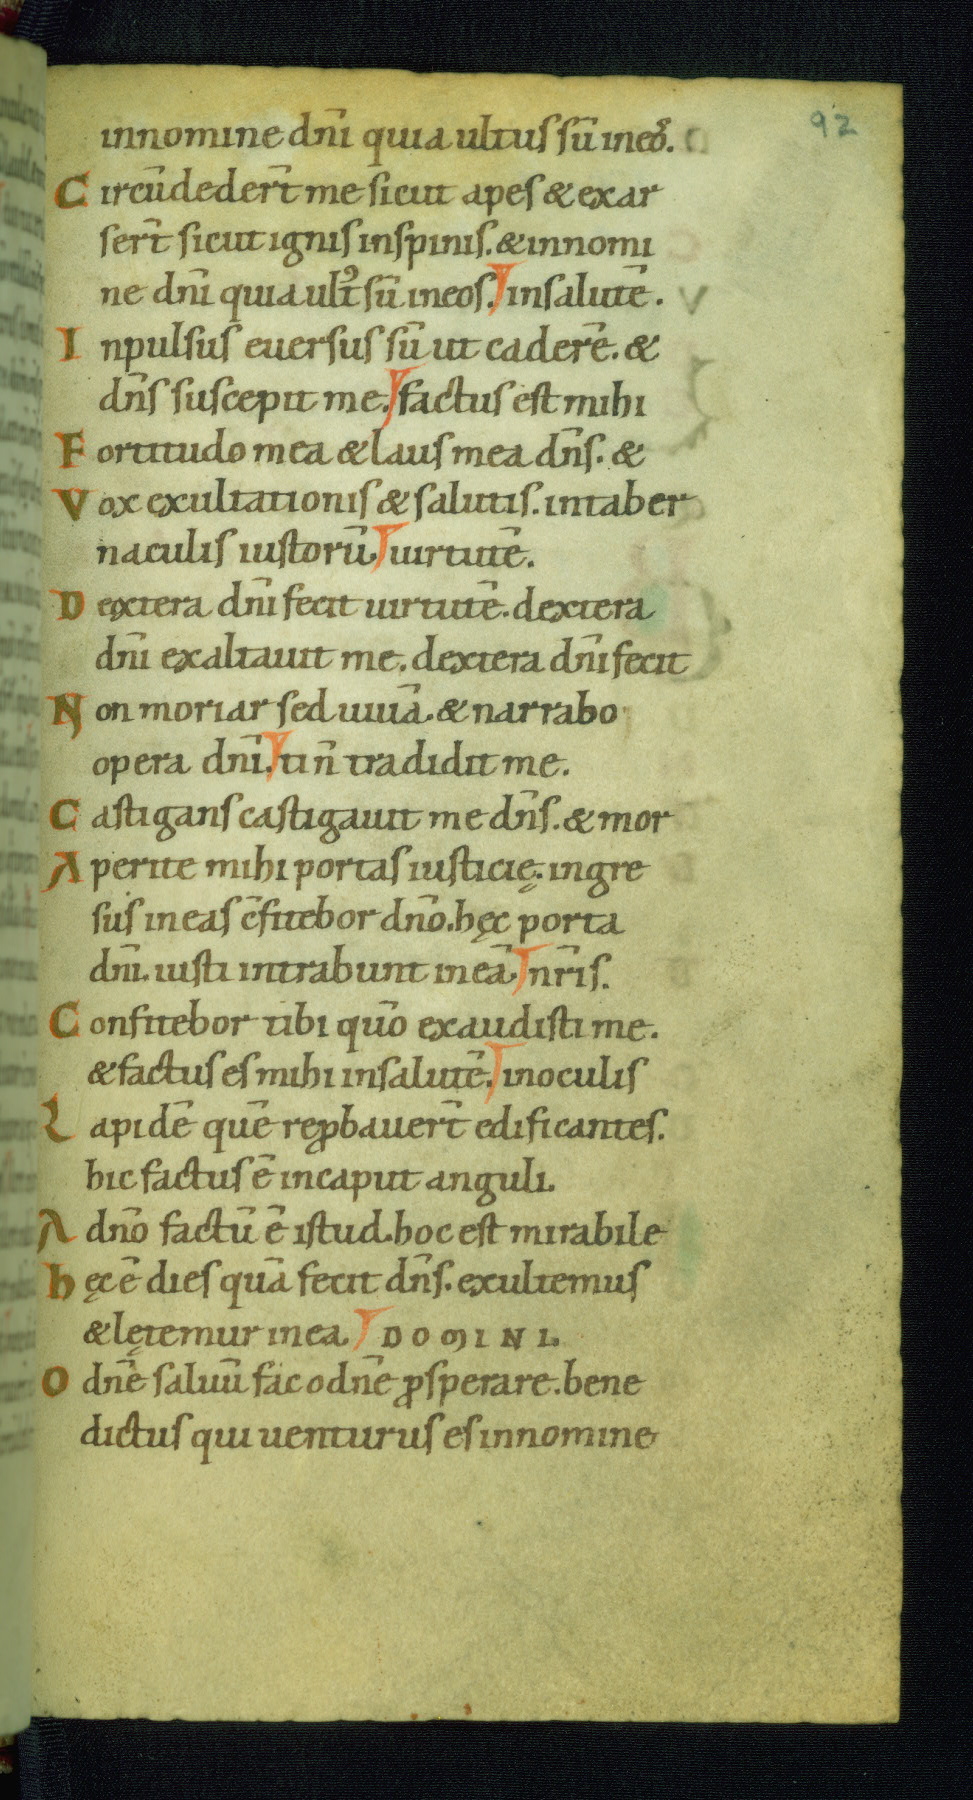 92
in nomine dn̄i quia ultus sū in eos.
Circūdeder̄t me sicut apes & exar
ser̄t sicut ignis in spinis. & in nomi
ne dn̄i quia ult᷒ sū in eos. in salutē.
Inpulsus euersus sū ut caderē. &
dn̄s suscepit me. factus est mihi
Fortitudo mea & laus mea dn̄s. &
Vox exultationis & salutis. in taber
naculis iustorū. uirtutē.
Dextera dn̄i fecit uirtutē. dextera
dn̄i exaltauit me. dextera dn̄i fecit
Non moriar sed uiuā. & narrabo
opera dn̄i. ti n̄ tradidit me.
Castigans castigauit me dn̄s. & mor
Aperite mihi portas iusticię. ingre
sus in eas c̄fitebor dn̄o. hęc porta
dn̄i. iusti intrabunt in eā. nr̄is.
Confitebor tibi quō exaudisti me.
& factus es mihi in salutē. in oculis
Lapidē quē reꝓbauer̄t edificantes.
hic factus ē in caput anguli.
A dn̄o factū ē istud. hoc est mirabile
hęc ē dies quā fecit dn̄s. exultemus
& lętemur in ea. DOMINI.
O dn̄e saluū fac o dn̄e ꝓsperare. bene
dictus qui uenturus es in nomine